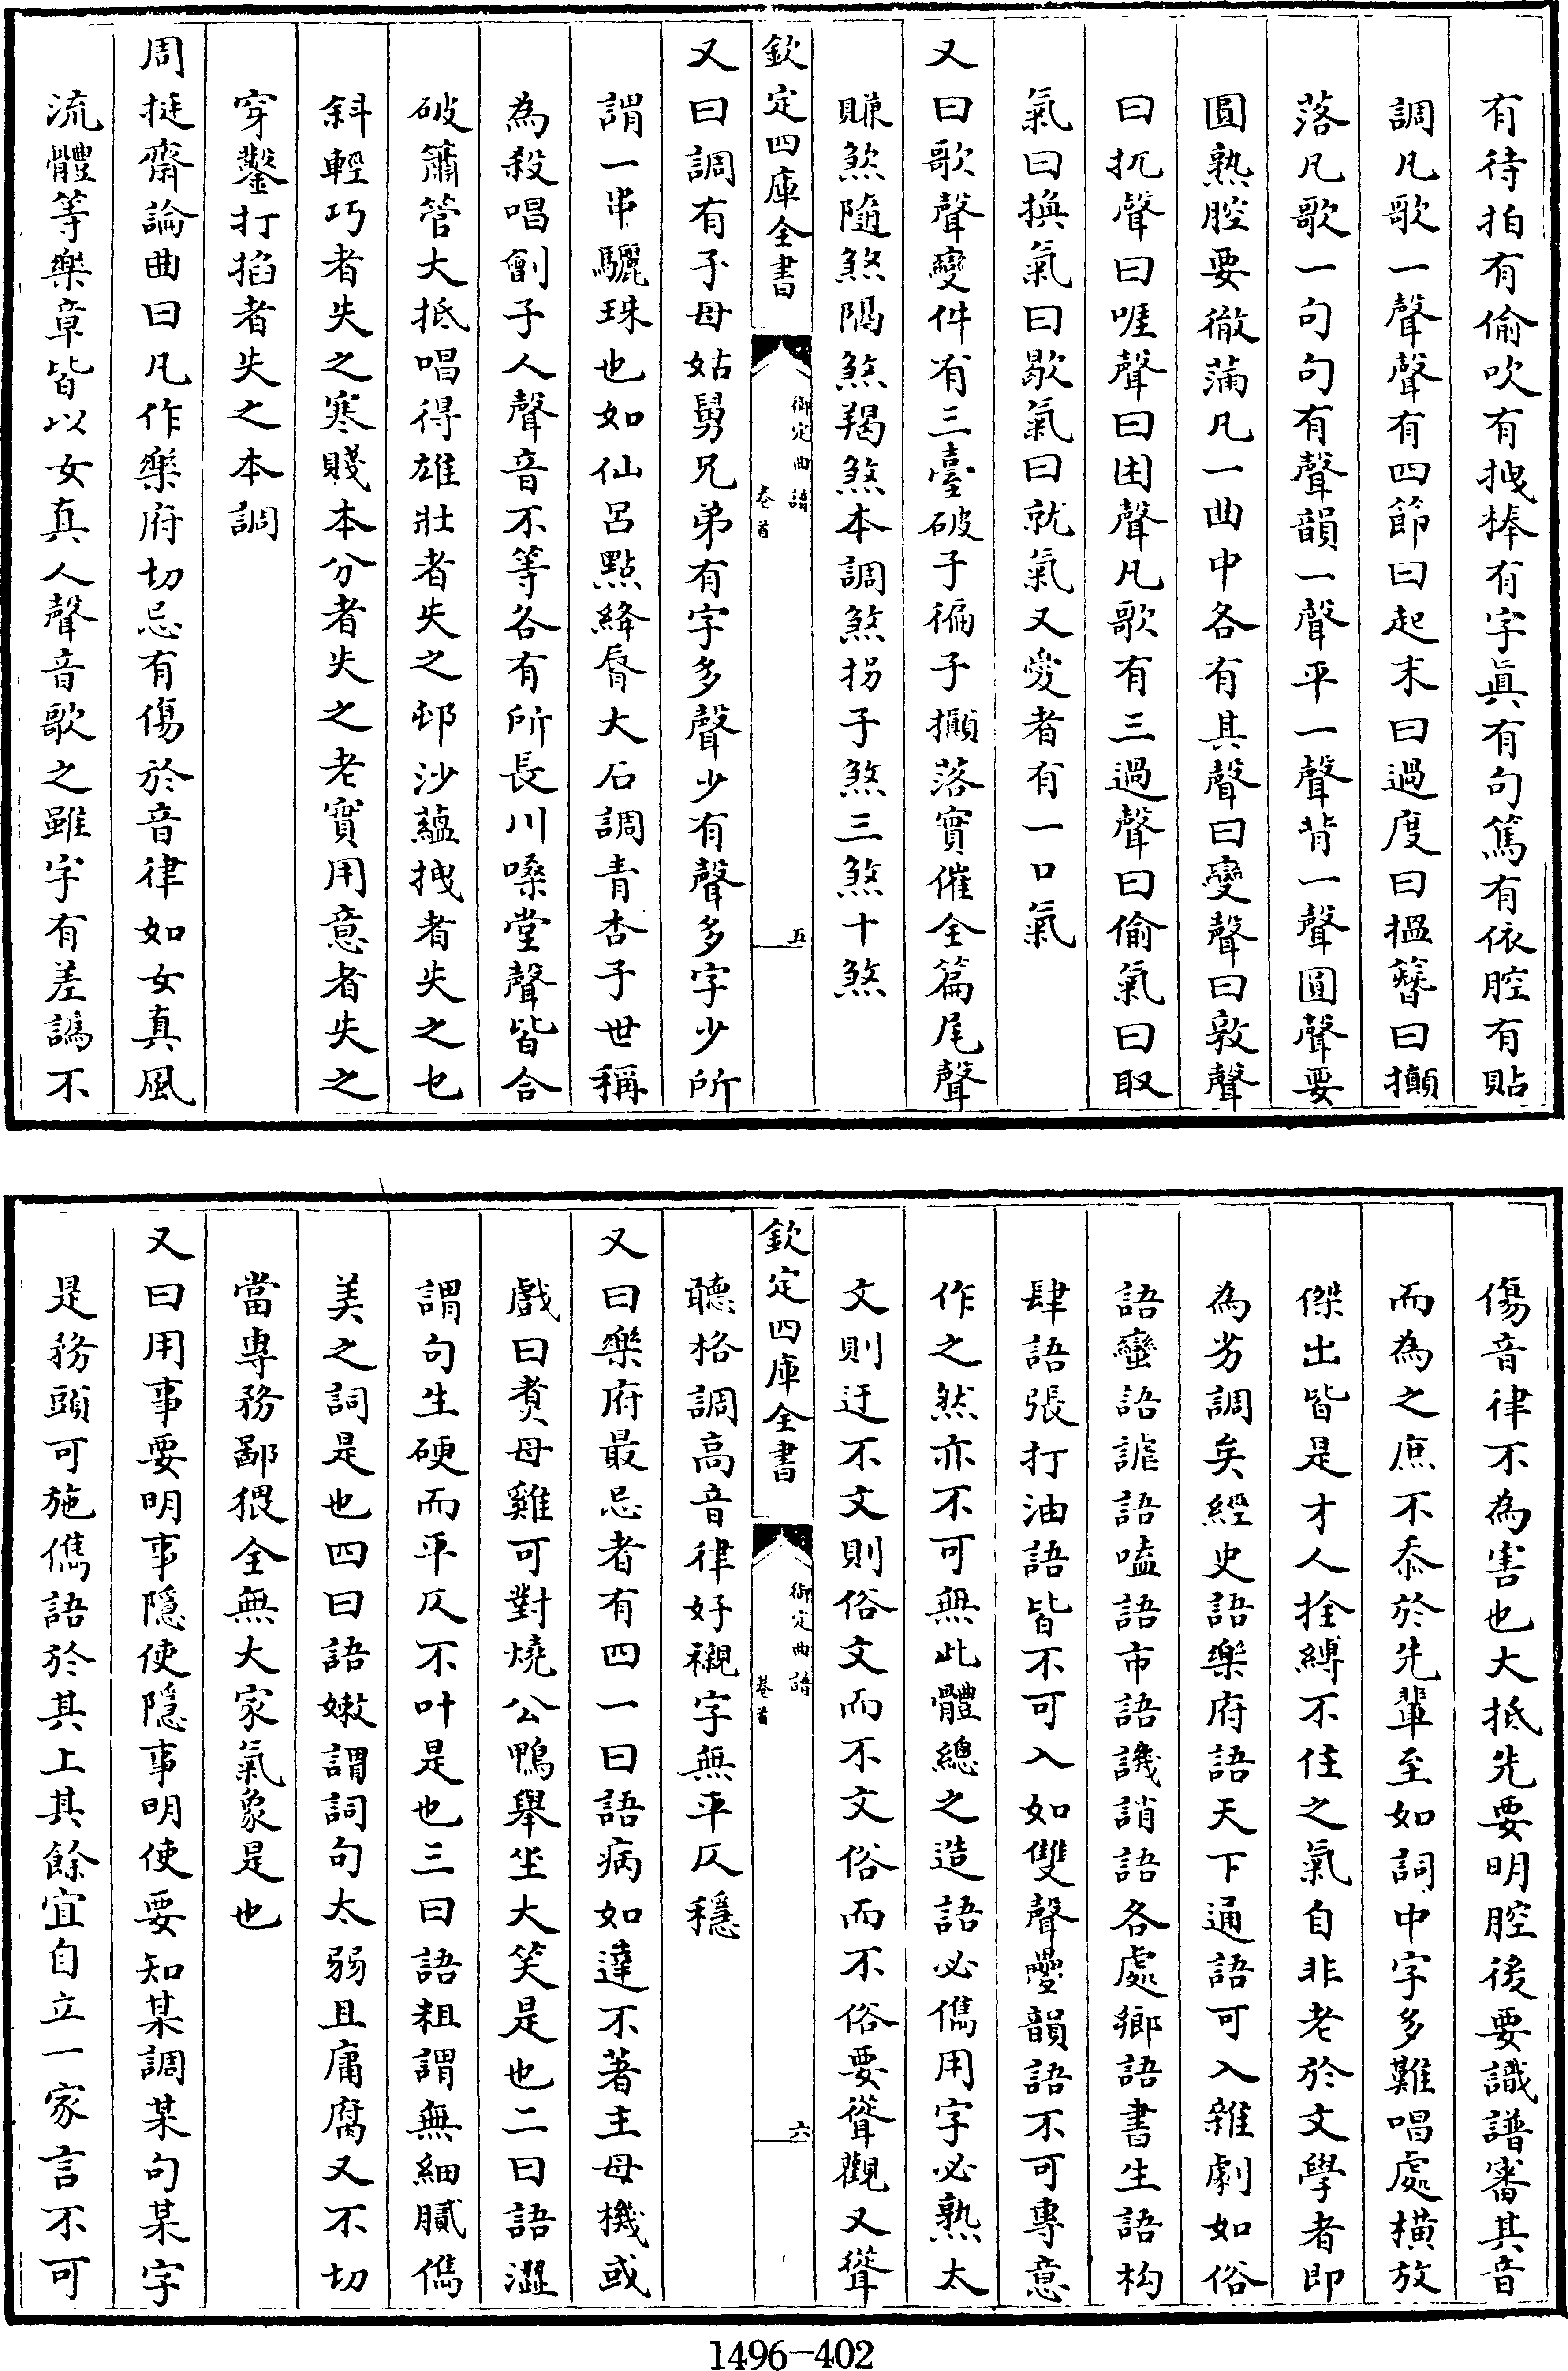 有待拍有偷吹有拽棒有字眞有句篤有依腔有貼
調凡歌一聲聲有四節曰起末曰過度曰搵簪曰攧
落凡歌一句句有聲韻一聲平一聲背一聲圓聲要
圓熟腔要徹蒲凡一曲中各有其聲曰變聲曰敦聲
曰扤聲曰啀聲曰困聲凡歌有三過聲曰偷氣曰取
氣曰換氣曰歇氣曰就氣又愛者有一口氣
又曰歌聲變件有三臺破子徧子攧落實催全篇尾聲
賺煞隨煞隔煞羯煞本調煞拐子煞三煞十煞
欽定四庫全書
御定曲譜
卷首
五
又曰調有子母姑舅兄弟有字多聲少有聲多字少所
謂一串驪珠也如仙呂點絳脣大石調青杏子世稱
為殺唱劊子人聲音不等各有所長川嗓堂聲皆合
破簫管大抵唱得雄壯者失之邨沙蘊拽者失之乜
斜輕巧者失之寒賤本分者失之老實用意者失之
穿鑿打掐者失之本調
周挺齋論曲曰凡作樂府切忌有傷於音律如女真風
流體等樂章皆以女真人聲音歌之雖字有差譌不
傷音律不為害也大抵先要明腔後要識譜審其音
而為之庶不忝於先輩至如詞中字多難唱處橫放
傑出皆是才人拴縛不住之氣自非老於文學者即
為劣調矣經史語樂府語天下通語可入雜劇如俗
語蠻語謔語嗑語市語譏誚語各處鄉語書生語构
肆語張打油語皆不可入如雙聲疊韻語不可專意
作之然亦不可無此體總之造語必儁用字必熟太
文則迂不文則俗文而不文俗而不俗要聳觀又聳
欽定四庫全書
御定曲譜
卷首
六
聽格調高音律好襯字無平仄穩
又曰樂府最忌者有四一曰語病如達不著主母機或
戲曰燒母雞可對燒公鴨舉坐大笑是也二曰語澀
謂句生硬而平仄不叶是也三曰語粗謂無細膩儁
美之詞是也四曰語嫩謂詞句太弱且庸腐又不切
當專務鄙猥全無大家氣象是也
又曰用事要明事隱使隱事明使要知某調某句某字
是務頭可施儁語於其上其餘宜自立一家言不可
1496-402